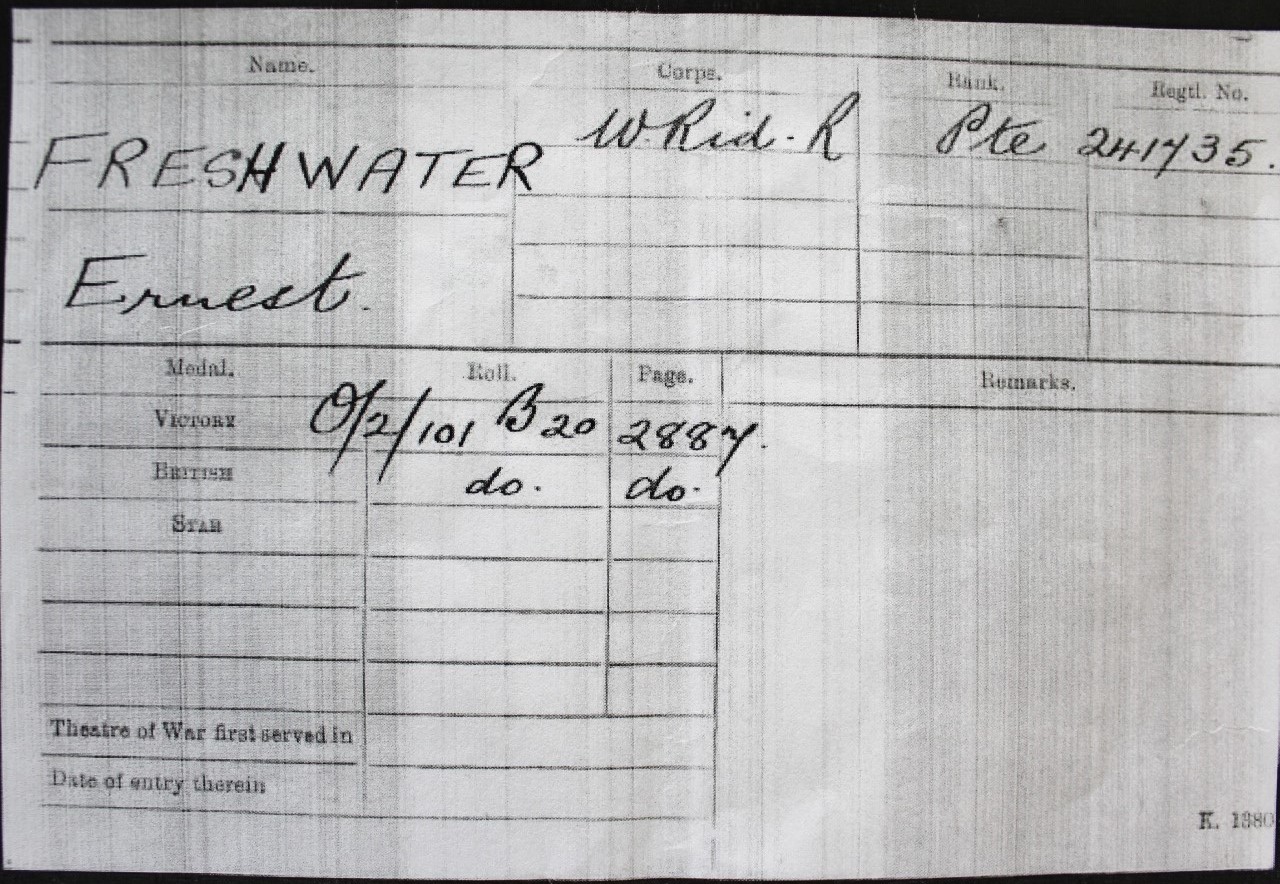 Name. Corps. Rank. Regtl. No.
FRESHWATER W. Rid. R Pte 241735.
Ernest.
Medal. Roll. Page. Remarks.
VICTORY O/2/101 B20 2887.
BRITISH do. do.
STAR
Theatre of War first served in
Date of entry therein
K. 1380